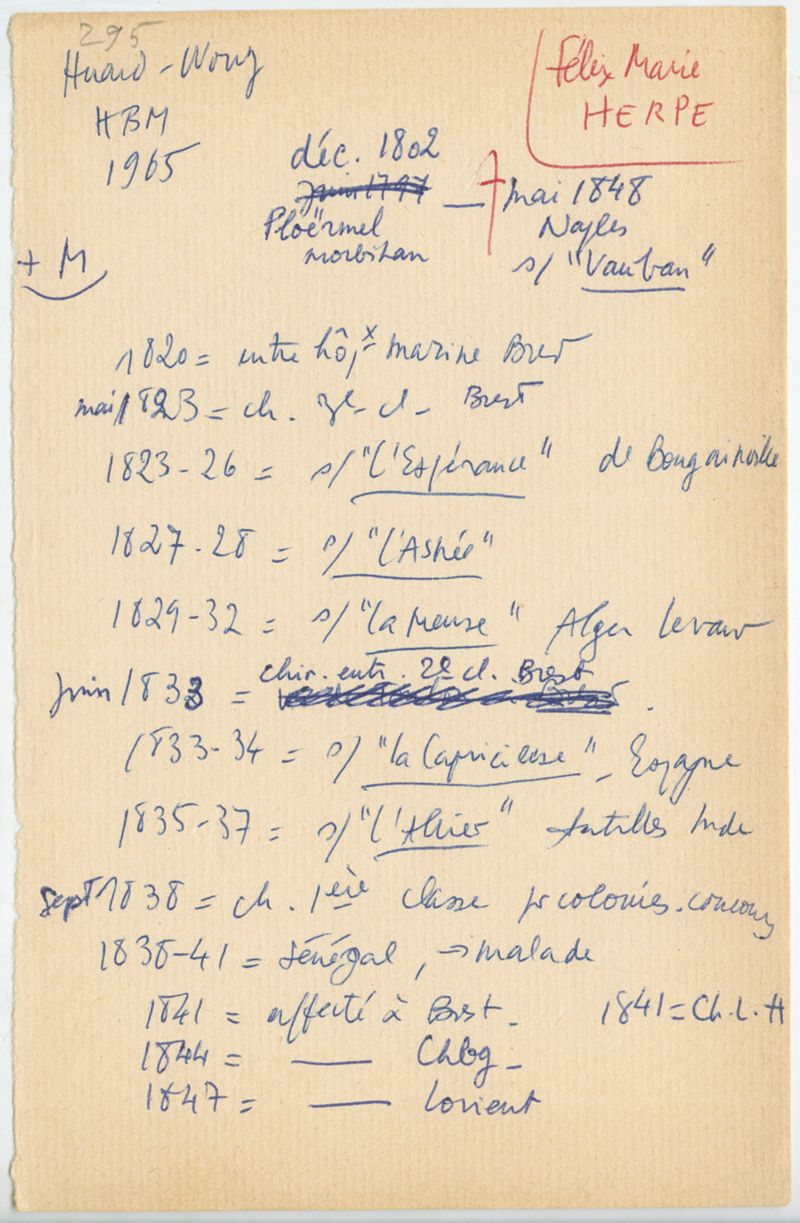 295
Huard-Wong
HBM
1965
Félix Marie
HERPE
déc. 1802
juin 1797 — † mai 1848
Ploërmel
Morbihan
Naples
s/ "Vauban"
+ M
1820 = entre hôpx Marine Brest
mai 1823 = ch. 3e cl - Brest
1823-26 = s/ "l'Espérance" de Bougainville
1827-28 = s/ "l'Astrée"
1829-32 = s/ "la Meuse" Alger Levant
juin 1833 = chir. entr. 2e cl. Brest
1833-34 = s/ "la Capricieuse" - Espagne
1835-37 = s/ "l'Allier" Antilles Inde
sept 1838 = ch. 1ère classe pr colonies. concours
1838-41 = Sénégal, → malade
1841 = affecté à Brest - 1841 = Ch. L. H
1844 = — Chbg -
1847 = — Lorient